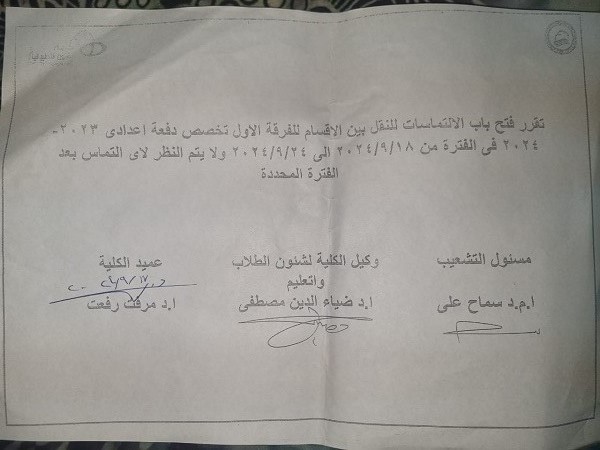 تقرر فتح باب الالتماسات للنقل بين الاقسام للفرقة الاول تخصص دفعة اعدادى ٢٠٢٣-
٢٠٢٤ فى الفترة من ٢٠٢٤/٩/١٨ الى ٢٠٢٤/٩/٢٤ ولا يتم النظر لاى التماس بعد
الفترة المحددة
مسئول التشعيب
ا.م.د سماح على
وكيل الكلية لشئون الطلاب
واتعليم
ا.د ضياء الدين مصطفى
عميد الكلية
ا.د مرفت رفعت